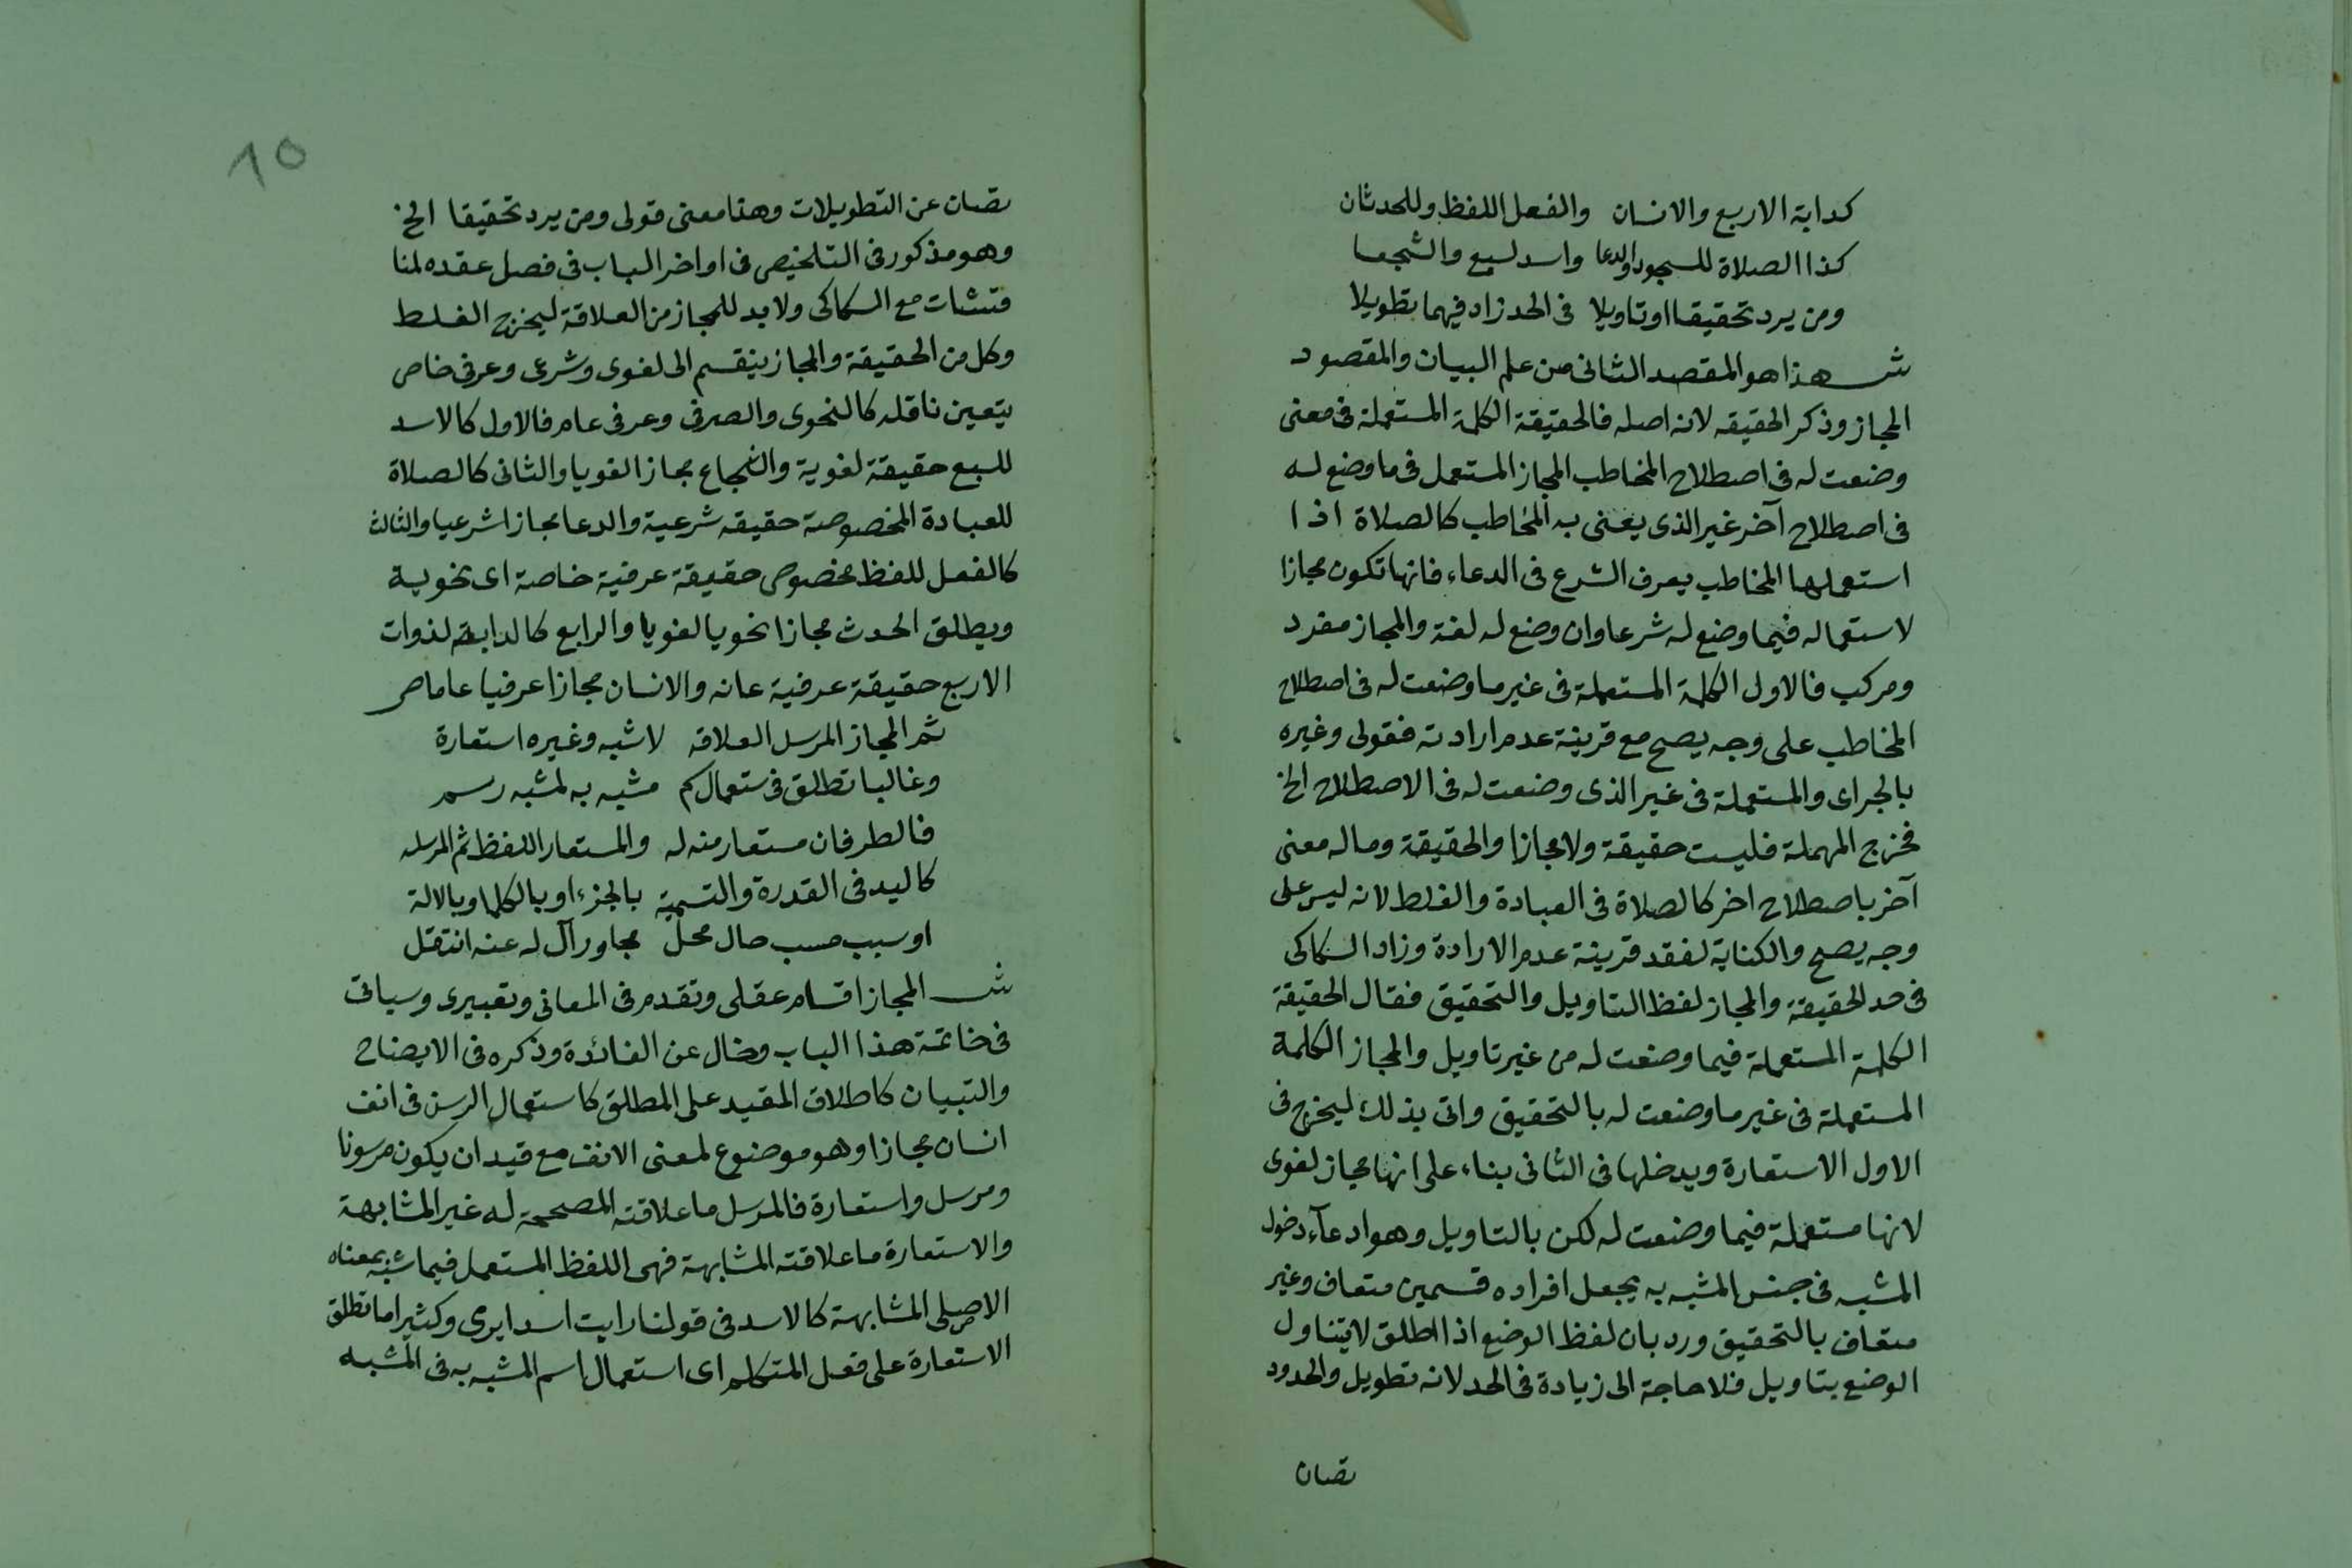 كدابة الاربع والانسان والفعل اللفظ وللحدثان
كذا الصلاة للسجود والدعا واسد لسبع والشجعا
ومن يرد تحقيقا اوتاويلا فى الحد زاد فيهما تطويلا
ش هذا هو المقصد الثانى من علم البيان والمقصود
المجاز وذكر الحقيقه لانه اصله فالحقيقة الكلمة المستعملة فى معنى
وضعت له فى اصطلاح المخاطب المجاز المستعمل فى ما وضع له
فى اصطلاح آخر غير الذى يعنى به المخاطب كالصلاة اذا
استعملها المخاطب بعرف الشرع فى الدعاء فانها تكون مجازا
لاستعماله فيما وضع له شرعا وان وضع له لغة والمجاز مفرد
ومركب فالاول الكلمة المستعملة فى غير ما وضعت له فى اصطلاح
المخاطب على وجه يصح مع قرينة عدم ارادته فقولى وغيره
بالجر اى والمستعملة فى غير الذى وضعت له فى الاصطلاح الخ
فخرج المهملة فليست حقيقة ولا مجازا والحقيقة وماله معنى
آخر باصطلاح اخر كالصلاة فى العبادة والغلط لانه ليس على
وجه يصح والكناية لفقد قرينة عدم الارادة وزاد السكاكى
فى حد الحقيقة والمجاز لفظ التاويل والتحقيق فقال الحقيقة
الكلمة المستعملة فيما وضعت له من غير تاويل والمجاز الكلمة
المستعملة فى غير ما وضعت له بالتحقيق واتى بذلك ليخرج فى
الاول الاستعارة ويدخلها فى الثانى بناء على انها مجاز لغوى
لانها مستعملة فيما وضعت له لكن بالتاويل وهو ادعآء دخول
المشبه فى جنس المشبه به بجعل افراده قسمين متعاف وغير
متعاف بالتحقيق ورد بان لفظ الوضع اذا اطلق لا يتناول
الوضع بتاويل فلا حاجة الى زيادة فى الحد لانه تطويل والحدود
تصان
10
تصان عن التطويلات وهذا معنى قولى ومن يرد تحقيقا الخ
وهو مذكور فى التلخيص فى اواخر الباب فى فصل عقده لمنا
قتشات مع السكاكى ولا بد للمجاز من العلاقة ليخرج الغلط
وكل من الحقيقة والمجاز ينقسم الى لغوى وشرعى وعرفى خاص
يتعين ناقله كالنحوى والصرفى وعرفى عام فالاول كالاسد
للسبع حقيقة لغوية والشجاع مجازا لغويا والثانى كالصلاة
للعبادة المخصوصة حقيقه شرعية والدعا مجازا شرعيا والثالث
كالفعل للفظ مخصوص حقيقة عرفية خاصة اى نحوية
ويطلق الحدث مجازا نحويا لغويا والرابع كالدابة لذوات
الاربع حقيقة عرفية عانه والانسان مجازا عرفيا عاما ص
ثم المجاز المرسل العلاقه لا شبه وغيره استعارة
وغالبا تطلق فى ستعمالكم مشبه به لمشبه رسم
فالطرفان مستعار منه له والمستعار اللفظ ثم المرسله
كاليد فى القدرة والتسمية بالجزء او بالكل او بالالة
او سبب مسبب حال محل مجاور آل له عنه انتقل
ش المجاز اقسام عقلى وتقدم فى المعانى وتعبيرى وسياتى
فى خاتمة هذا الباب وخال عن الفائدة وذكره فى الايضاح
والتبيان كاطلاق المقيد على المطلق كاستعمال الرسن فى انف
انسان مجازا وهو موضوع لمعنى الانف مع قيد ان يكون مرسونا
ومرسل واستعارة فالمرسل ما علاقته المصححة له غير المشابهة
والاستعارة ما علاقته المشابهة فهى اللفظ المستعمل فيما شبه بمعناه
الاصلى المشابهة كالاسد فى قولنا رايت اسدا يرمى وكثيرا ما تطلق
الاستعارة على فعل المتكلم اى استعمال اسم المشبه به فى المشبه